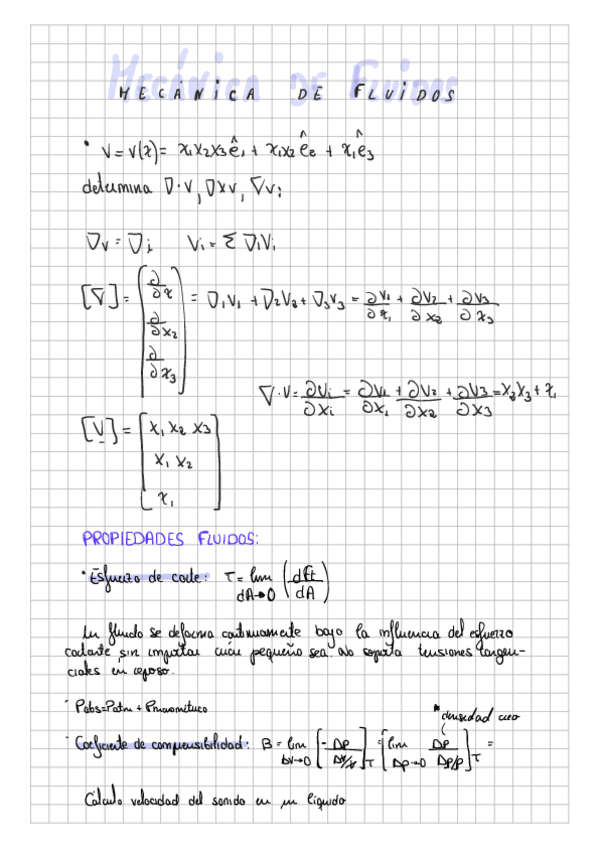 MECÁNICA DE FLUIDOS
• V = V(x) = x₁x₂x₃ê₁ + x₁x₂ê₂ + x₁ê₃
determina ∇·V, ∇×V, ∇V;
∇v = ∇i Vi = Σ ∇iVi
[∇] = (∂/∂x ∂/∂x₂ ∂/∂x₃) = ∇₁V₁ + ∇₂V₂ + ∇₃V₃ = ∂V₁/∂x₁ + ∂V₂/∂x₂ + ∂V₃/∂x₃
∇·V = ∂Vi/∂xi = ∂V₁/∂x₁ + ∂V₂/∂x₂ + ∂V₃/∂x₃ = x₂x₃ + x₁
[V] = [x₁x₂x₃
x₁x₂
x₁]
PROPIEDADES FLUIDOS:
• Esfuerzo de corte: τ = lim dA→0 (dFt/dA)
Un fluido se deforma continuamente bajo la influencia del esfuerzo
cortante sin importar cuán pequeño sea. No soporta tensiones tangen-
ciales en reposo.
• Pabs = Patm + Pmanométrica
* densidad
• Coeficiente de compresibilidad: B = lim ΔV→0 [-Δp/ΔV/V]T = [lim Δp→0 Δp/Δρ/ρ]T =
Cálculo velocidad del sonido en un líquido